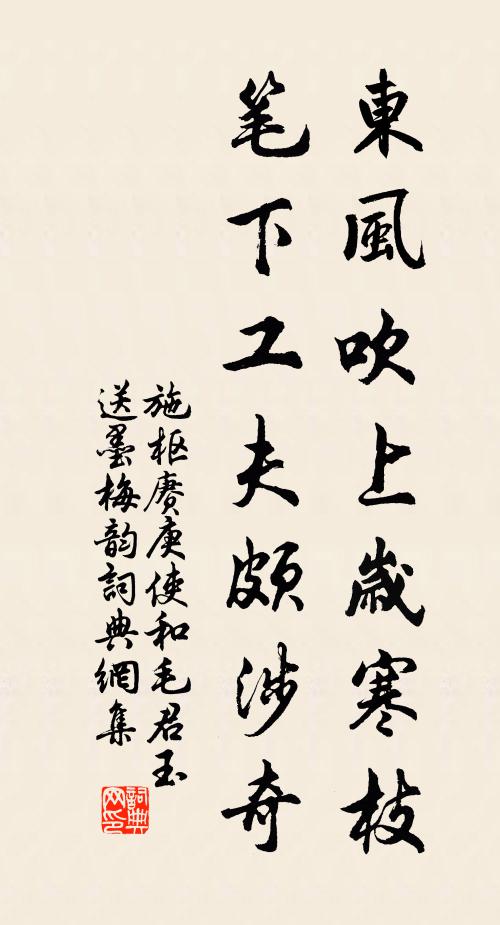 東風吹上歲寒枝
笔下工夫頗涉奇
施枢赓庾使和毛君玉
送墨梅韵詞典網集
詞典
网印